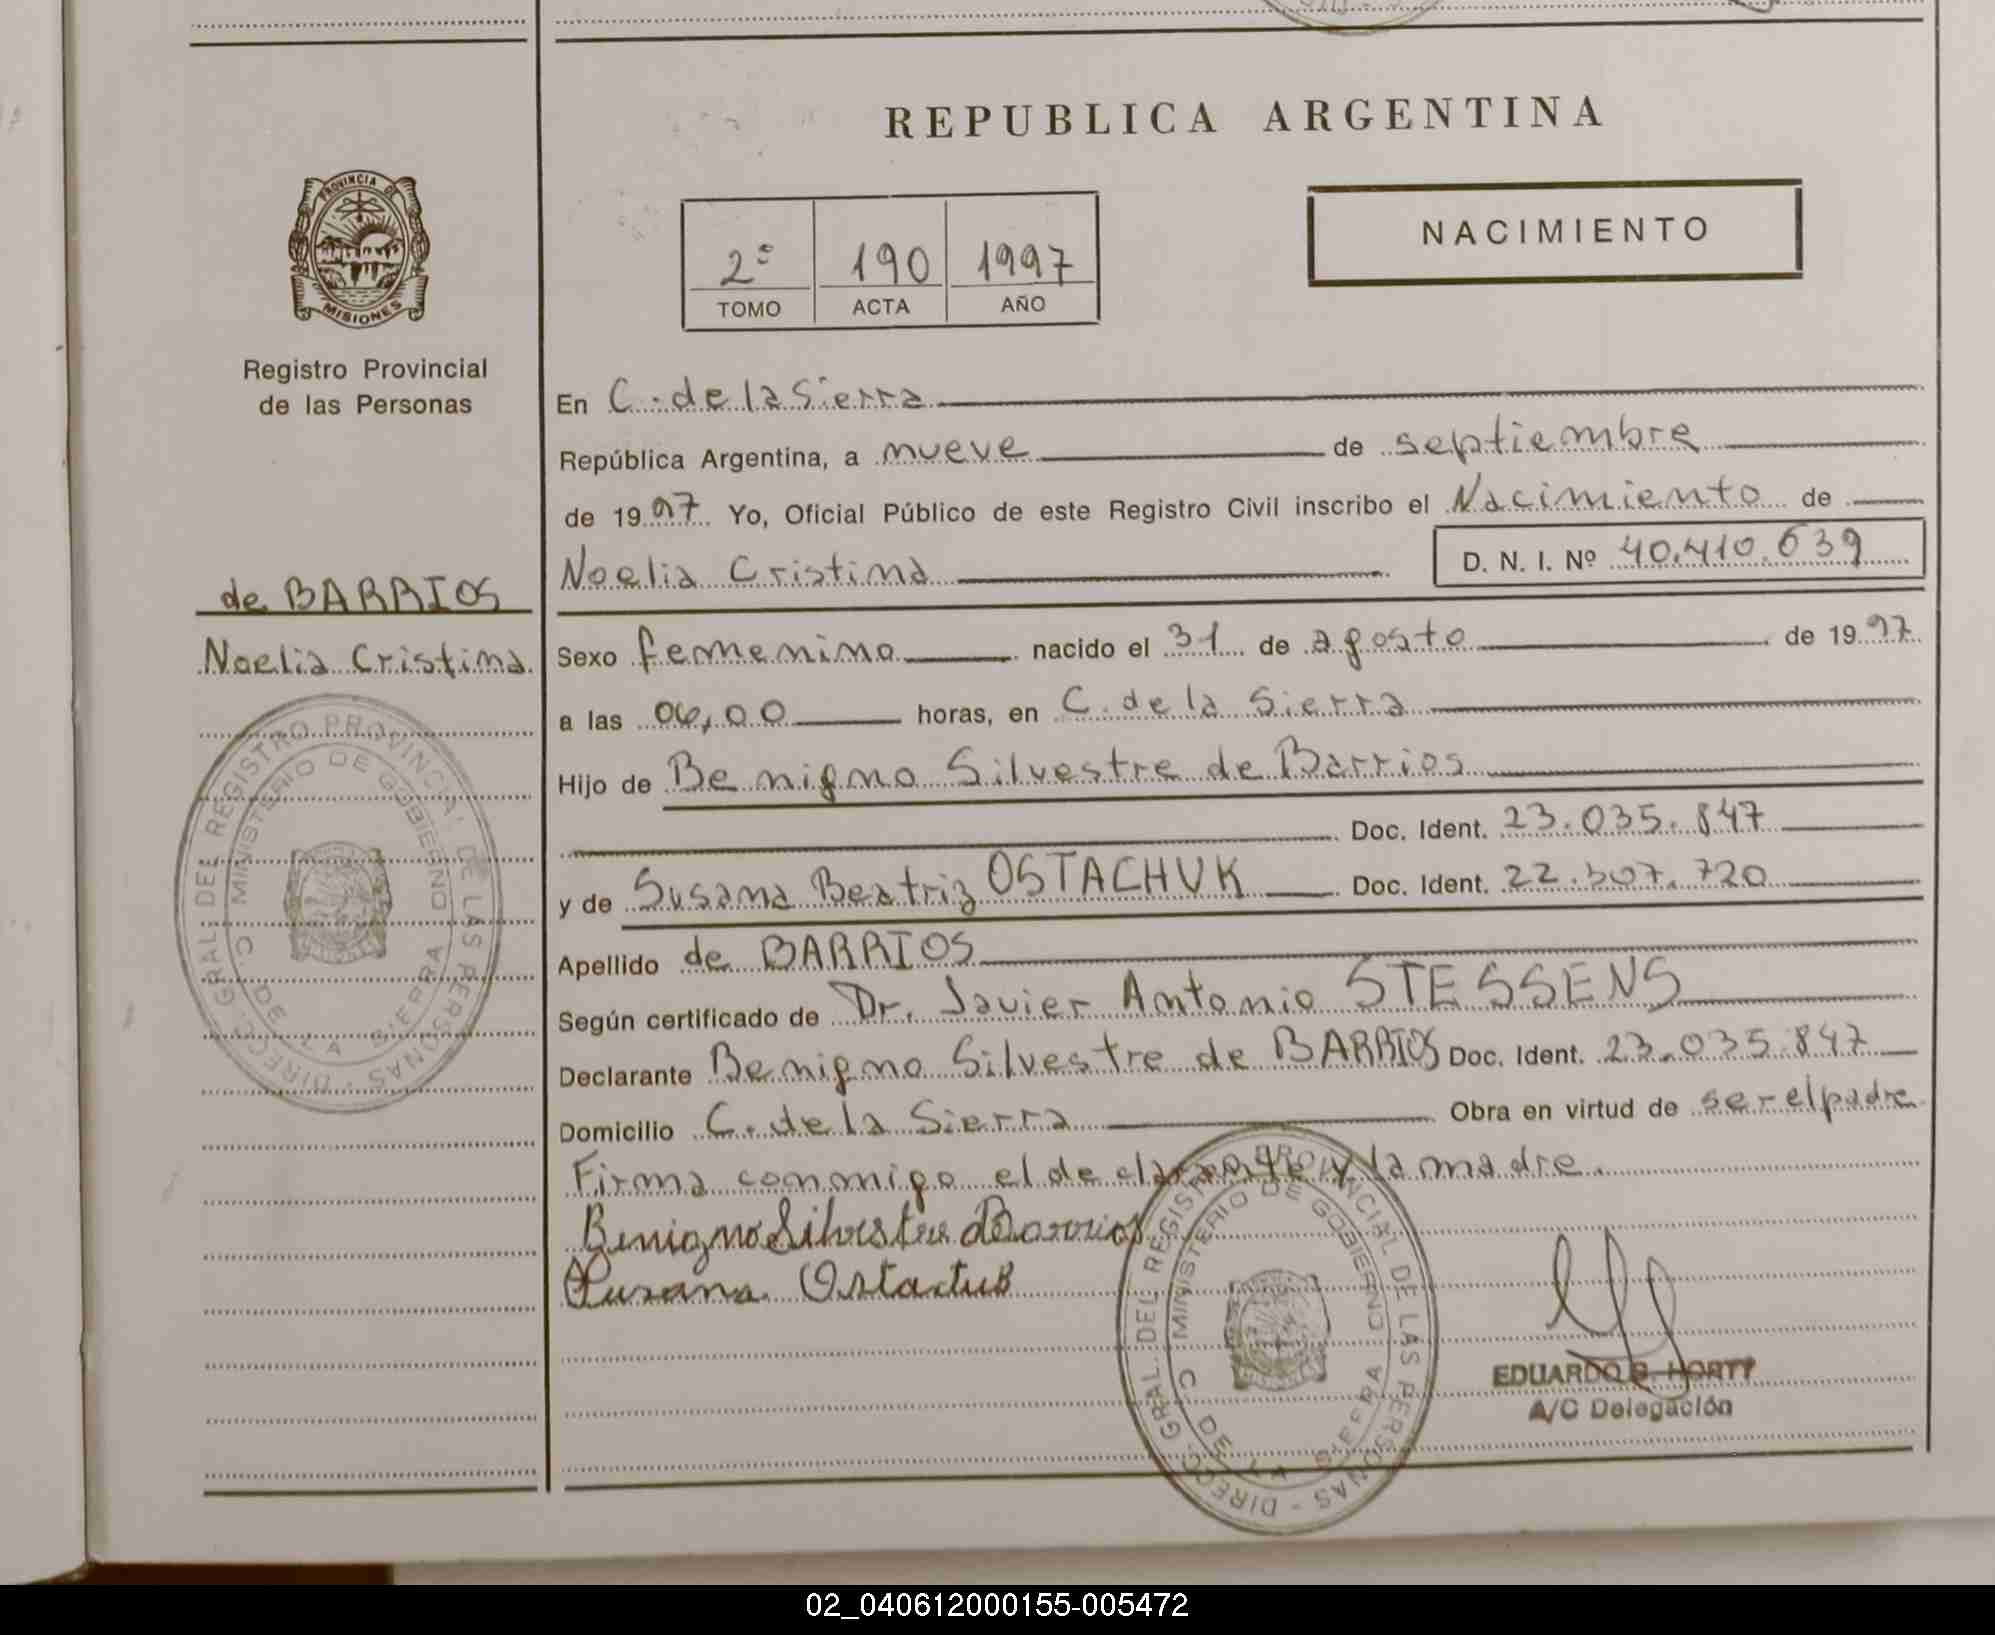 REPUBLICA ARGENTINA
NACIMIENTO
2º 190 1997
TOMO ACTA AÑO
PROVINCIA DE
MISIONES
Registro Provincial
de las Personas
de BARRIOS
Noelia Cristina
DIRECC. GRAL. DEL REGISTRO PROVINCIAL DE LAS PERSONAS
MINISTERIO DE GOBIERNO
C. DE LA SIERRA
En C. de la Sierra
República Argentina, a nueve de septiembre
de 1997 Yo, Oficial Público de este Registro Civil inscribo el Nacimiento de
Noelia Cristina D. N. I. Nº 40.410.639
Sexo femenino nacido el 31 de agosto de 1997
a las 06,00 horas, en C. de la Sierra
Hijo de Benigno Silvestre de Barrios
Doc. Ident. 23.035.847
y de Susana Beatriz OSTACHUK Doc. Ident. 22.507.720
Apellido de BARRIOS
Según certificado de Dr. Javier Antonio STESSENS
Declarante Benigno Silvestre de BARRIOS Doc. Ident. 23.035.847
Domicilio C. de la Sierra Obra en virtud de ser el padre
Firma conmigo el declarante y la madre.
Benigno Silvestre de Barrios
Susana Ostachuk
DIRECC. GRAL. DEL REGISTRO PROVINCIAL DE LAS PERSONAS
MINISTERIO DE GOBIERNO
C. DE LA SIERRA
EDUARDO
A/C Delegación
02_040612000155-005472